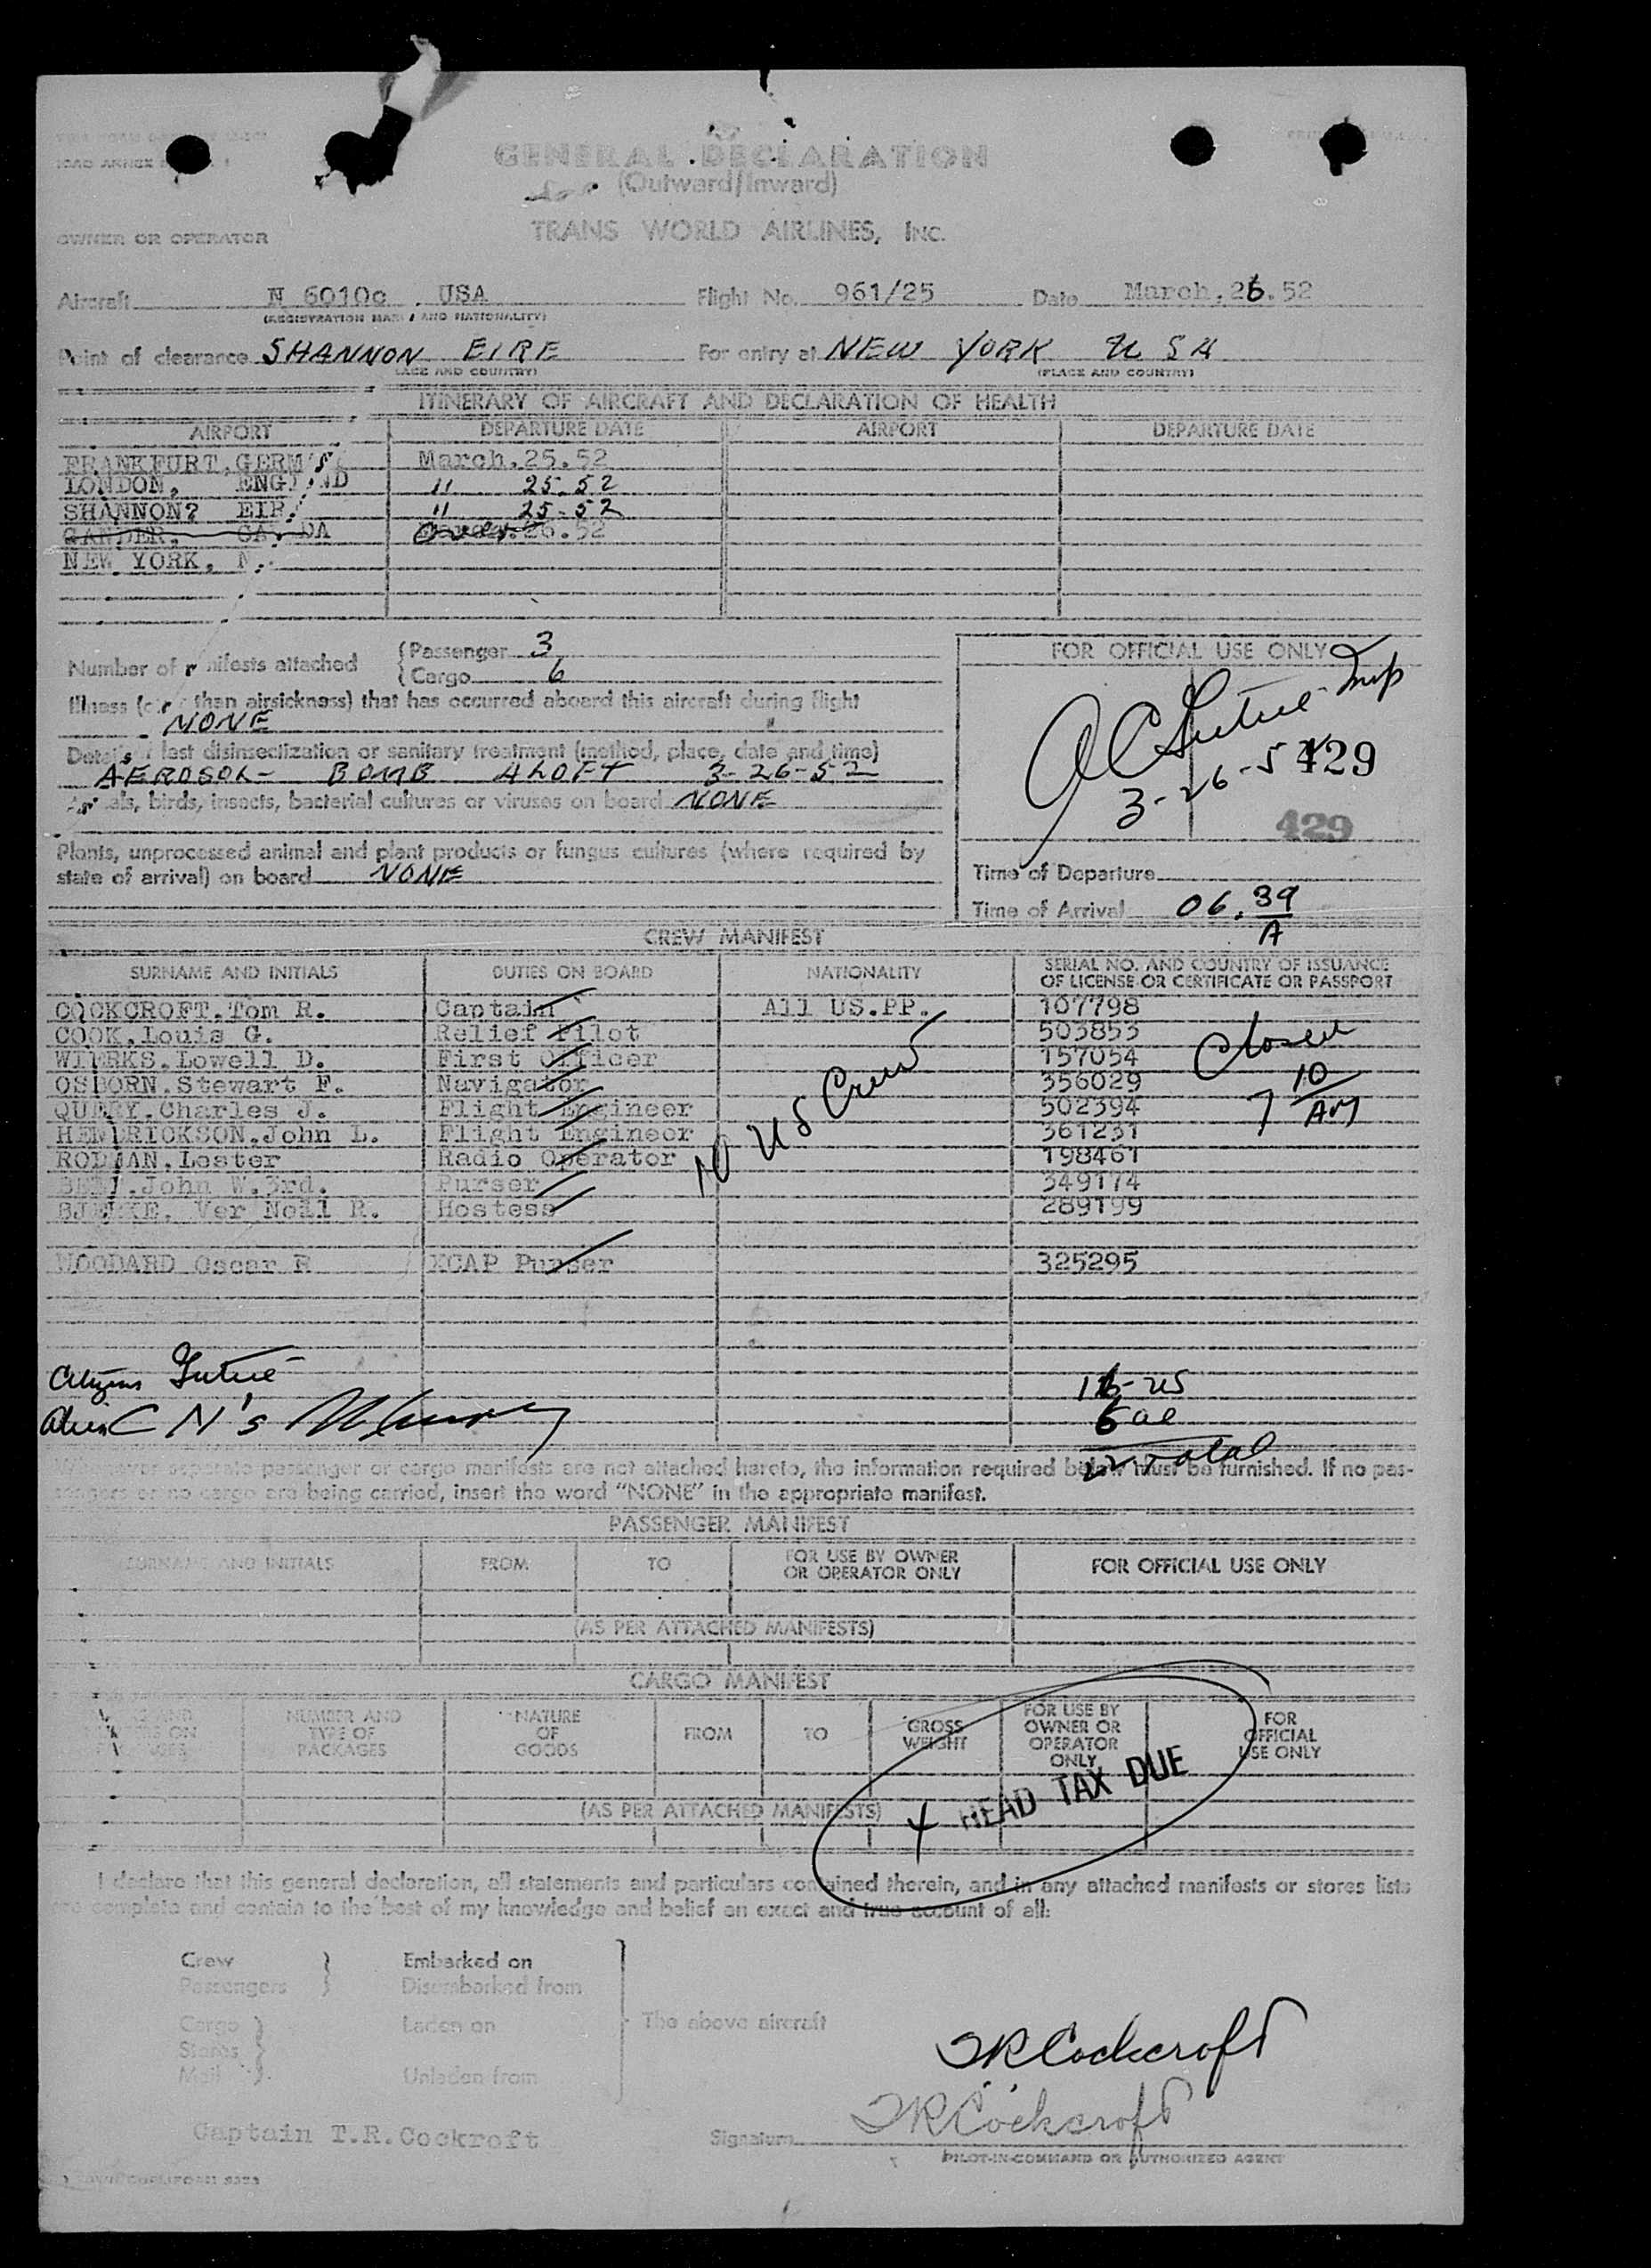 GENERAL DECLARATION
(Outward/Inward)
OWNER OR OPERATOR TRANS WORLD AIRLINES, INC.
Aircraft N 6010c . USA Flight No. 961/25 Date March.26.52
(REGISTRATION MARKS AND NATIONALITY)
Point of clearance SHANNON EIRE For entry at NEW YORK USA
(PLACE AND COUNTRY)
ITINERARY OF AIRCRAFT AND DECLARATION OF HEALTH
AIRPORT DEPARTURE DATE AIRPORT DEPARTURE DATE
FRANKFURT,GERM March.25.52
LONDON, ENGLAND " 25.52
SHANNON? EIR " 25-52
GANDER, CANADA Over 26.52
NEW YORK, N.
Number of manifests attached
Passenger 3
Cargo 6
Illness (other than airsickness) that has occurred aboard this aircraft during flight
NONE
Details of last disinsectization or sanitary treatment (method, place, date and time)
AEROSOL- BOMB ALOFT 3-26-52
Animals, birds, insects, bacterial cultures or viruses on board NONE
Plants, unprocessed animal and plant products or fungus cultures (where required by
state of arrival) on board NONE
FOR OFFICIAL USE ONLY
3-26-52
429
429
Time of Departure
Time of Arrival 06.39
A
CREW MANIFEST
SURNAME AND INITIALS DUTIES ON BOARD NATIONALITY SERIAL NO. AND COUNTRY OF ISSUANCE
OF LICENSE OR CERTIFICATE OR PASSPORT
COCKCROFT.Tom R. Captain All US.PP. 107798
COOK.Louis G. Relief Pilot 503853
WITRKS.Lowell D. First Officer 157054
OSBORN.Stewart F. Navigator 356029
QUERY.Charles J. Flight Engineer 502394
HENDRICKSON.John L. Flight Engineer 361231
RODMAN.Lester Radio Operator 198461
John W.3rd. Purser 349174
Ver Neil R. Hostess 289199
WOODARD Oscar R XCAP Purser 325295
10 US Crew
Closed
7 10
AM
Citizens
Alien C N's
16-US
6 al
22 Total
Whenever separate passenger or cargo manifests are not attached hereto, the information required below must be furnished. If no pas-
sengers or no cargo are being carried, insert the word "NONE" in the appropriate manifest.
PASSENGER MANIFEST
SURNAME AND INITIALS FROM TO FOR USE BY OWNER
OR OPERATOR ONLY FOR OFFICIAL USE ONLY
(AS PER ATTACHED MANIFESTS)
CARGO MANIFEST
NUMBER AND
TYPE OF
PACKAGES
NATURE
OF
GOODS
FROM TO GROSS
WEIGHT
FOR USE BY
OWNER OR
OPERATOR
ONLY
FOR
OFFICIAL
USE ONLY
(AS PER ATTACHED MANIFESTS)
HEAD TAX DUE
I declare that this general declaration, all statements and particulars contained therein, and in any attached manifests or stores lists
are complete and contain to the best of my knowledge and belief an exact and true account of all:
Crew Embarked on
Passengers Disembarked from
Cargo Laden on The above aircraft
Stores
Mail Unladen from
TRCockcroft
TRCockcroft
Captain T.R.Cockroft Signature
PILOT-IN-COMMAND OR AUTHORIZED AGENT